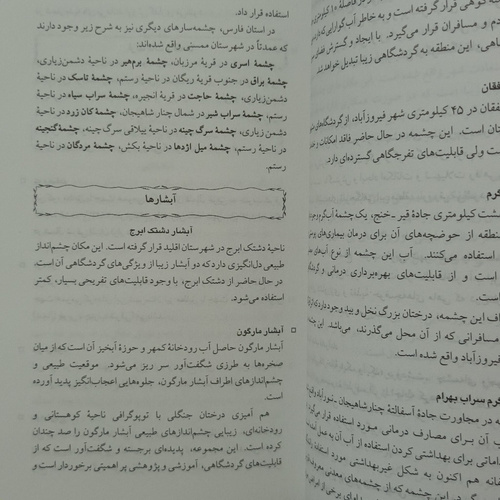 استفاده قرار داد.
در استان فارس، چشمه‌سارهای دیگری نیز به شرح زیر وجود دارند
که عمدتاً در شهرستان ممسنی واقع شده‌اند:
چشمهٔ اسری در قریهٔ مرزیان، چشمهٔ برم‌هیر در ناحیهٔ دشمن‌زیاری،
چشمهٔ براق در جنوب قریهٔ ریگان در ناحیهٔ رستم، چشمهٔ تاسک در ناحیهٔ
دشمن‌زیاری، چشمهٔ حاجت در قریهٔ انجیره، چشمهٔ سراب سیاه در ناحیهٔ
رستم، چشمهٔ سراب شیر در شمال چنار شاهیجان، چشمهٔ کان زرد در ناحیهٔ
دشمن زیاری، چشمهٔ سرگ چینه در ناحیهٔ ییلاقی سرگ چینه، چشمهٔ گنجینه
در ناحیهٔ رستم، چشمهٔ میل اژدها در ناحیهٔ بکش، چشمهٔ مردگان در ناحیهٔ
رستم.
آبشارها
آبشار دشتک ابرج
ناحیهٔ دشتک ابرج در شهرستان اقلید قرار گرفته است. این مکان چشم‌انداز
طبیعی دل‌انگیزی دارد که دو آبشار زیبا از ویژگی‌های گردشگاهی آن است.
در حال حاضر از دشتک ابرج، با وجود قابلیت‌های تفریحی بسیار، کمتر
استفاده می‌شود.
آبشار مارگون
آبشار مارگون حاصل آب رودخانهٔ کمهر و حوزهٔ آبخیز آن است که از میان
صخره‌ها به طرزی شگفت‌آور سر ریز می‌شود. موقعیت طبیعی و
چشم‌اندازهای اطراف آبشار مارگون، جلوه‌هایی اعجاب‌انگیز پدید آورده
است.
هم آمیزی درختان جنگلی با توپوگرافی ناحیهٔ کوهستانی و
رودخانه‌ای، زیبایی چشم‌اندازهای طبیعی آبشار مارگون را صد چندان
کرده است. این مجموعه، پدیده‌ای برجسته و شگفت‌آور است که از
قابلیت‌های گردشگاهی، آموزشی و پژوهشی پر اهمیتی برخوردار است و
کوهی قرار گرفته است و به خاطر آب گوارایی
م و مسافران قرار می‌گیرد. با ایجاد و گسترش
اهی، این منطقه به گردشگاهی زیبا تبدیل خواهد
فقان
فقان در ۴۵ کیلومتری شهر فیروزآباد، از گردشگاه‌های
تان است. این چشمه در حال حاضر فاقد امکانات و
ست ولی قابلیت‌های تفرجگاهی گسترده‌ای دارد.
گرم
شت کیلومتری جادهٔ قیر ـ خنج، یک چشمهٔ آب‌گرم و
منطقه از حوضچه‌های آن برای درمان بیماری‌های
استفاده می‌کنند. آب این چشمه از نوع آب‌های
است و از قابلیت‌های بهره‌برداری درمانی و
ست.
اف این چشمه، درختان بزرگ نخل و بید وجود دارد که
مسافرانی که از آن محل می‌گذرند، می‌باشد. این
فیروزآباد واقع شده است.
گرم سراب بهرام
ه در مجاورت جادهٔ آسفالتهٔ چنارشاهیجان ـ نورآباد
آب آن برای مصارف درمانی مورد استفاده قرار
داماتی برای بهداشتی کردن استفاده از آب
انه هم اکنون به شکل غیربهداشتی مورد
گردی در این چشمه که از چشمه‌های معدنی